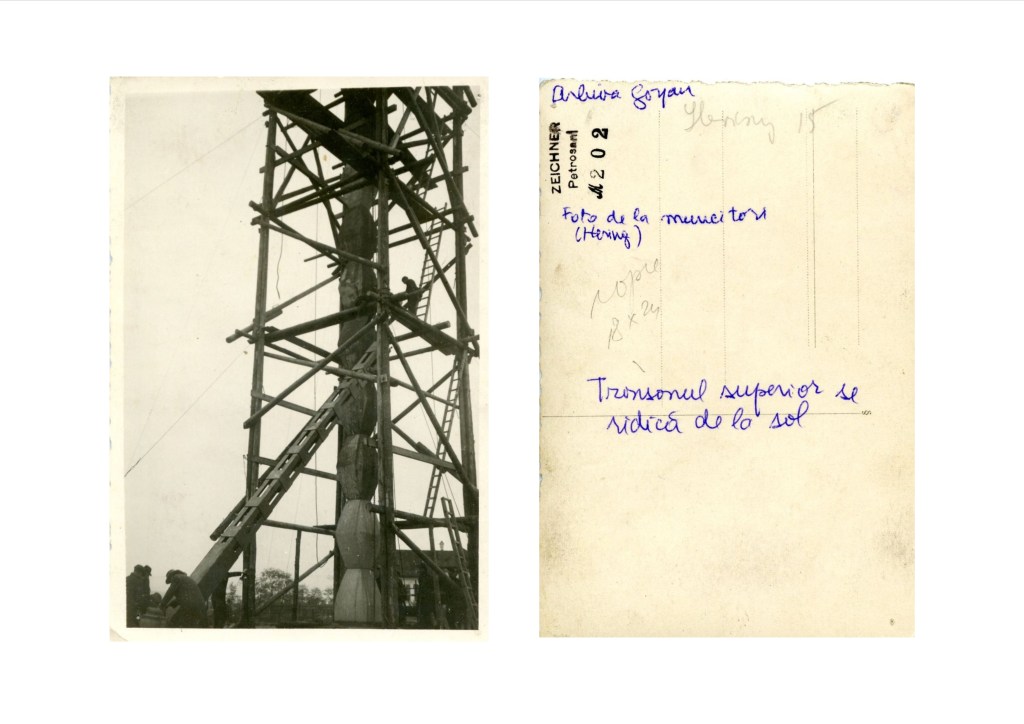 Arhiva Goyan
Hering 15
ZEICHNER
Petrosani
№ 202
Foto de la muncitori
(Hering)
copie
18 x 24
Tronsonul superior se
ridică de la sol